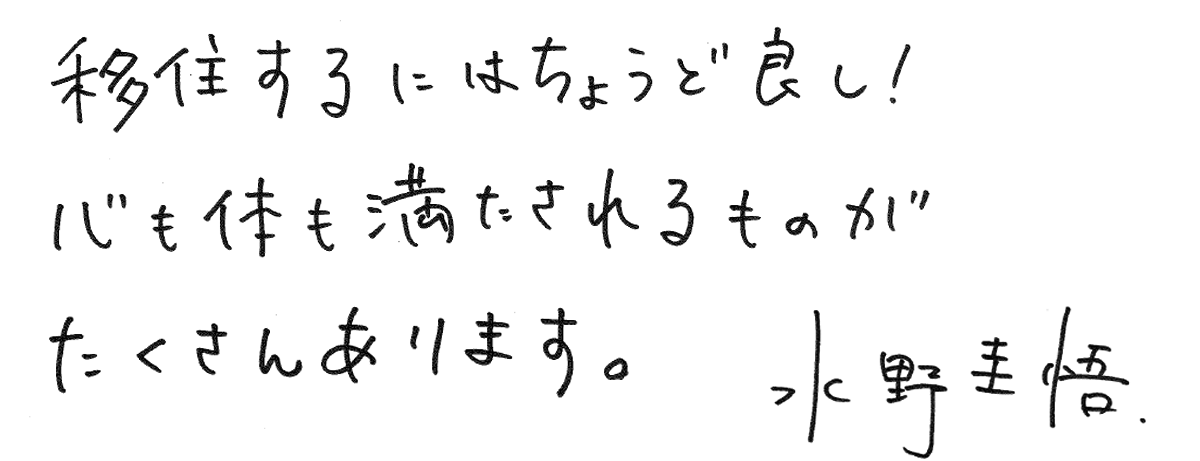 移住するにはちょうど良し！
心も体も満たされるものが
たくさんあります。
水野圭悟.